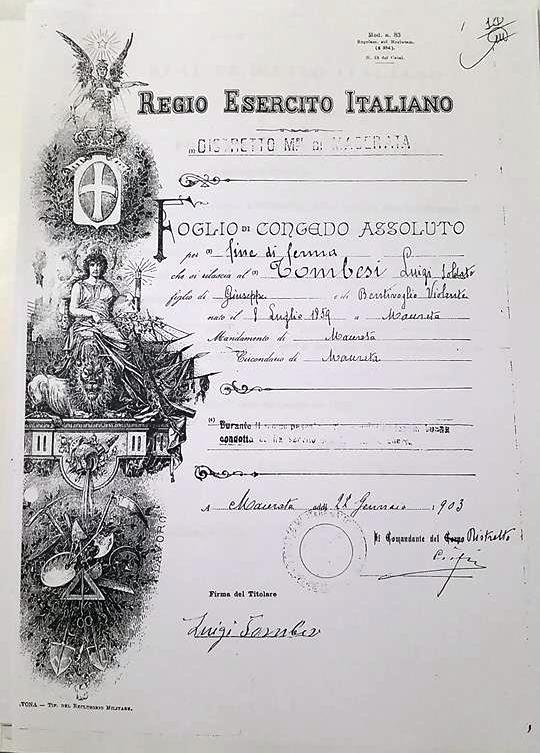 Mod. n. 83
Regolam. sul Reclutam.
(§ 984)
N. 13 del Catal.
REGIO ESERCITO ITALIANO
(1) DISTRETTO Mre DI MACERATA
FOGLIO DI CONGEDO ASSOLUTO
per (2) fine di ferma
che si rilascia al (3) Tombesi Luigi soldato
figlio di Giuseppe e di Bentivoglio Violante
nato il 8 Luglio 1859 a Macerata
Mandamento di Macerata
Circondario di Macerata
(4) Durante il tempo
condotta ed ha
A Macerata addì 22 Gennaio 1903
Il Comandante del Corpo Distretto
Firma del Titolare
Luigi Tombesi
LAVORO
TIP. DEL RECLUSORIO MILITARE.